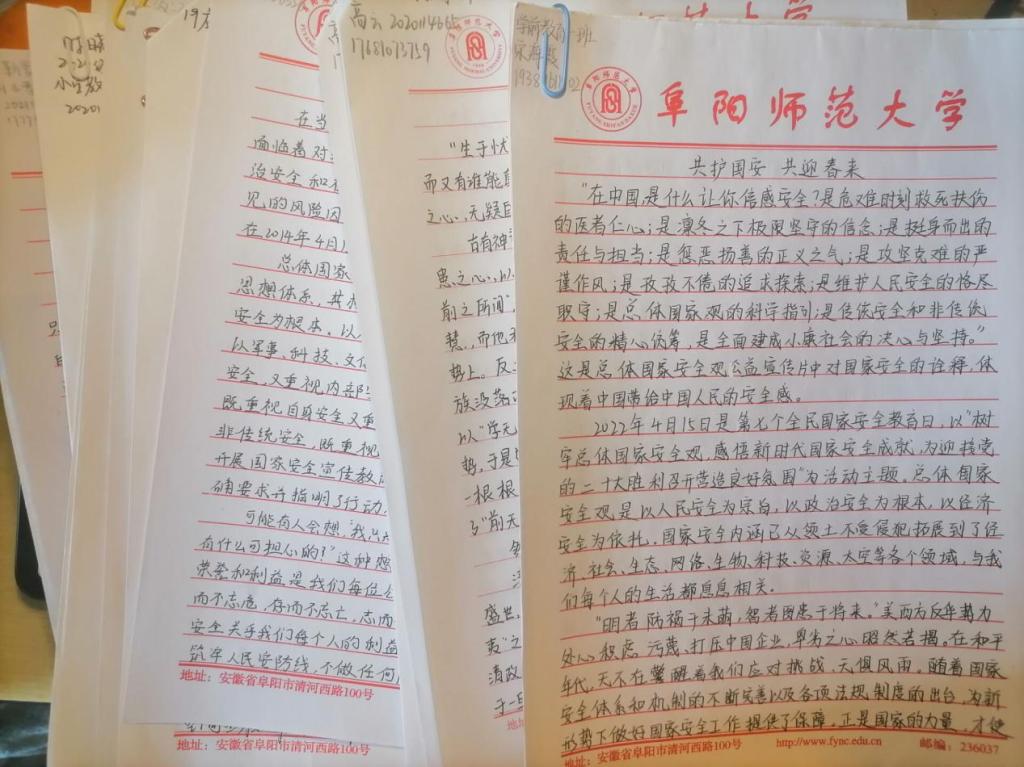 学前教育一班
阜阳师范大学
共护国安 共迎春来
“在中国,是什么让你倍感安全?是危难时刻救死扶伤
的医者仁心;是凛冬之下极限坚守的信念;是挺身而出的
责任与担当;是惩恶扬善的正义之气;是攻坚克难的严
谨作风;是孜孜不倦的追求探索;是维护人民安全的恪尽
职守;是总体国家观的科学指引;是传统安全和非传统
安全的精心统筹,是全面建成小康社会的决心与坚持。”
这是总体国家安全观公益宣传片中对国家安全的诠释,体
现着中国带给中国人民的安全感。
2022年4月15日是第七个全民国家安全教育日,以“树
牢总体国家安全观,感悟新时代国家安全成就,为迎接党
的二十大胜利召开营造良好氛围”为活动主题。总体国家
安全观是以人民安全为宗旨,以政治安全为根本,以经济
安全为依托。国家安全内涵已从领土不受侵犯拓展到了经
济、社会、生态、网络、生物、科技、资源、太空等各个领域,与我
们每个人的生活都息息相关。
“明者防祸于未萌,智者图患于将来。”美西方反华势力
处心积虑污蔑、打压中国企业,卑劣之心昭然若揭。在和平
年代,无不在警醒着我们应对挑战,无惧风雨。随着国家
安全体系和机制的不断完善以及各项法规制度的出台,为新
形势下做好国家安全工作提供了保障。正是国家的力量,才使
地址:安徽省阜阳市清河西路100号 http://www.fync.edu.cn 邮编:236037
高云 2020114665
17681073759
“生于忧
而又有谁能
之心,无疑
古有神
患之心,以
前之所闻
慧,而他
势上。反
族没落
以“学无
势,于是
一根根
了“前天
盛世,
夷”之
清政
于一旦
地址
19
在当
面临着对
治安全和
见的风险因
在2014年4月1
总体国家
思想体系,其
安全为根本,以
以军事、科技、文化
安全,又重视内部
既重视自身安全又重
非传统安全,既重视
开展国家安全宣传教
确要求并指明了行动
可能有人会想,我
有什么可担心的?”这种想
荣誉和利益是我们每位公
而不忘危,存而不忘亡,
安全关乎我们每个人的利益
筑牢人民安防线,不做任何
地址:安徽省阜阳市清河西路100号
地址:安徽省阜阳市清河西路100号
小学教
20201